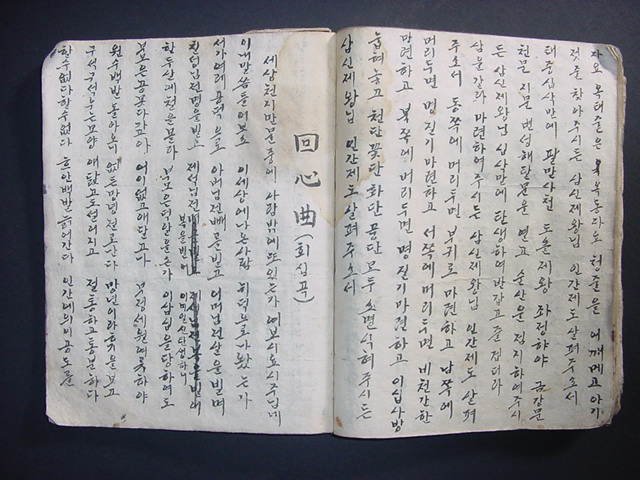 자오 모태준은 부동자도 청춘을 어깨메고 아기
젓줄 찾아주시든 삼신제왕님 인간제도 살펴주소서
태중십삭만에 팔만사천 도솔제왕 좌정하야 금강문
천문 지문 변성해탈문을 열고 순산을 정지하여주시
든 삼신제왕님 십삭만에 탄생하여 반갑고
삼문 갈라 마련하여 주시든 삼신제왕님 인간제도 살펴
주소서 동쪽에 머리두면 부귀로 마련하고 남쪽에
머리두면 명길기 마련하고 서쪽에 머리두면 비천간한
마련하고 북쪽에 머리두면 명길기 마련하고 이십사방
눕혀놓고 천단 꽃단 화단 공단 모두 식혀주시든
삼신제왕님 인간제도 살펴주소서
回心曲(회심곡)
세상천지만물중에 사람밖에또있는가 여보시요시주님네
이내말씀들어보소 이세상에나온사람 뉘덕으로나왔는가
서가여레 공덕으로 아버님전뼈를빌고 어머님전살을빌며
칠성님전명을빌고 제석님전 복을빌어 이내일신탄생하니
한두살에철을몰라 부모은덕알을손가 이삼십을당하여도
부모은공못다갚아 어이없고애닲고나 무정세월여류하야
원수백발돌아오니 없든망녕절로난다 망년이라흉을보고
구석구석웃는모양 애닲고도설은지고 절통하고통분하다
할수없다할수없다 홍안백발늙어간다 인간에이공도를